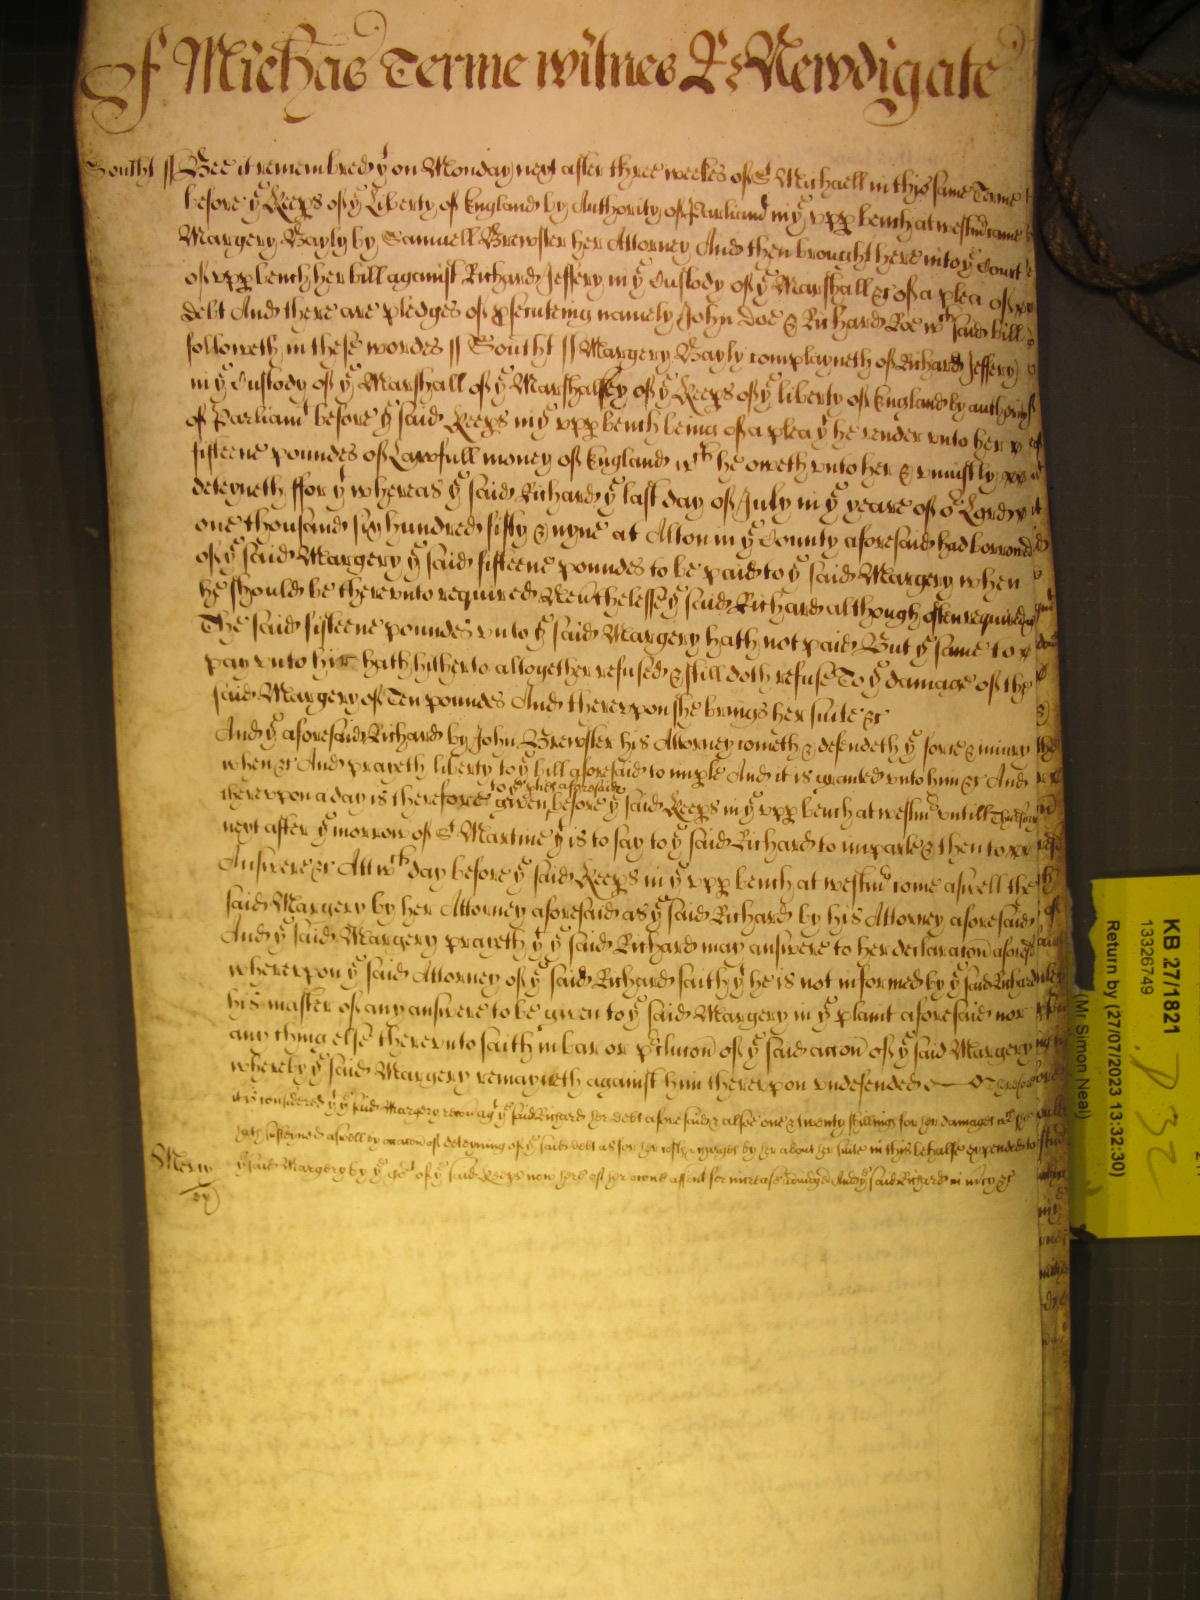 Of Michas Terme witnes R: Newdigate
Southt ss Bee it remembred yt on Monday next after three weekes of St Michaell in this same Terme
before ye Keeps of ye Liberty of England by Authority of Parliamt in ye upp bench at westmr came
Margery Bayly by Samuell Brewster her Attorney And then brought here into ye Court
of upp bench her bill against Richard Jeffery in ye Custody of ye Marshall &c of a plea of
debt And there are pledges of psecuteing namely John Doe & Richard Roe wch said bill
followeth in these wordes ss Southt ss Margery Bayly complayneth of Richard Jeffery
in ye Custody of ye Marshall of ye Marshalsey of ye Keeps of ye liberty of England by authority
of Parliamt before ye said Keeps in ye upp bench being of a plea yt he render unto her
fifteene poundes of Lawfull money of England wch he oweth unto her & uniustly
deteyneth ffor yt whereas ye said Richard ye last day of July in ye yeare of or Lord
one thousand six hundred fifty & nyne at Alton in ye County aforesaid had borrowed
of ye said Margery ye said fifteene poundes to be paid to ye said Margery when
he should be thereunto required Nevrthelesse ye said Richard although often required
The said fifteene poundes unto ye said Margery hath not paid But ye same to
pay unto hir hath hitherto altogether refused & still doth refuse To ye damage of the
said Margery of Ten poundes And thereupon she brings her suite &c
And ye aforesaid Richard by John Brewster his Attorney cometh & defendeth ye force & iniury
when &c And prayeth liberty to ye bill aforesaid to imple And it is granted unto him &c And
thereupon a day is therefore given to ye pties aforesaid before ye said Keeps in ye upp bench at westmr untill Thursday
next after ye morrow of St Martine yt is to say to ye said Richard to imparle & then to
Answere &c Att wch day before ye said Keeps in ye upp bench at westmr come aswell the
said Margery by her Attorney aforesaid as ye said Richard by his Attorney aforesaid
And ye said Margery prayeth yt ye said Richard may answere to her declaracon aforesd
whereupon ye said Attorney of ye said Richard saith yt he is not informed by ye said Richard
his master of any answere to be given to ye said Margery in ye plaint aforesaid nor
any thing else thereunto saith in bar or pclusion of ye said accon of ye said Margery
whereby ye said Margery remayneth against him thereupon undefended Therefore
it is considered yt ye said Margery recovr agt ye said Richard her debt aforesaid & alsoe one & twenty shillings for her damages wch she
hath susteyned aswell by occacon of deteyning of ye said debt as for her costs & charges by her about her suite in this behalfe expended to
Mercy ye said Margery by ye Cot of ye said Keeps now here of her owne assent for increase adiudged And ye said Richard in mrcy &c
KB 27/1821
13326749
Return by (27/07/2023 13:32:30)
(Mr Simon Neal)